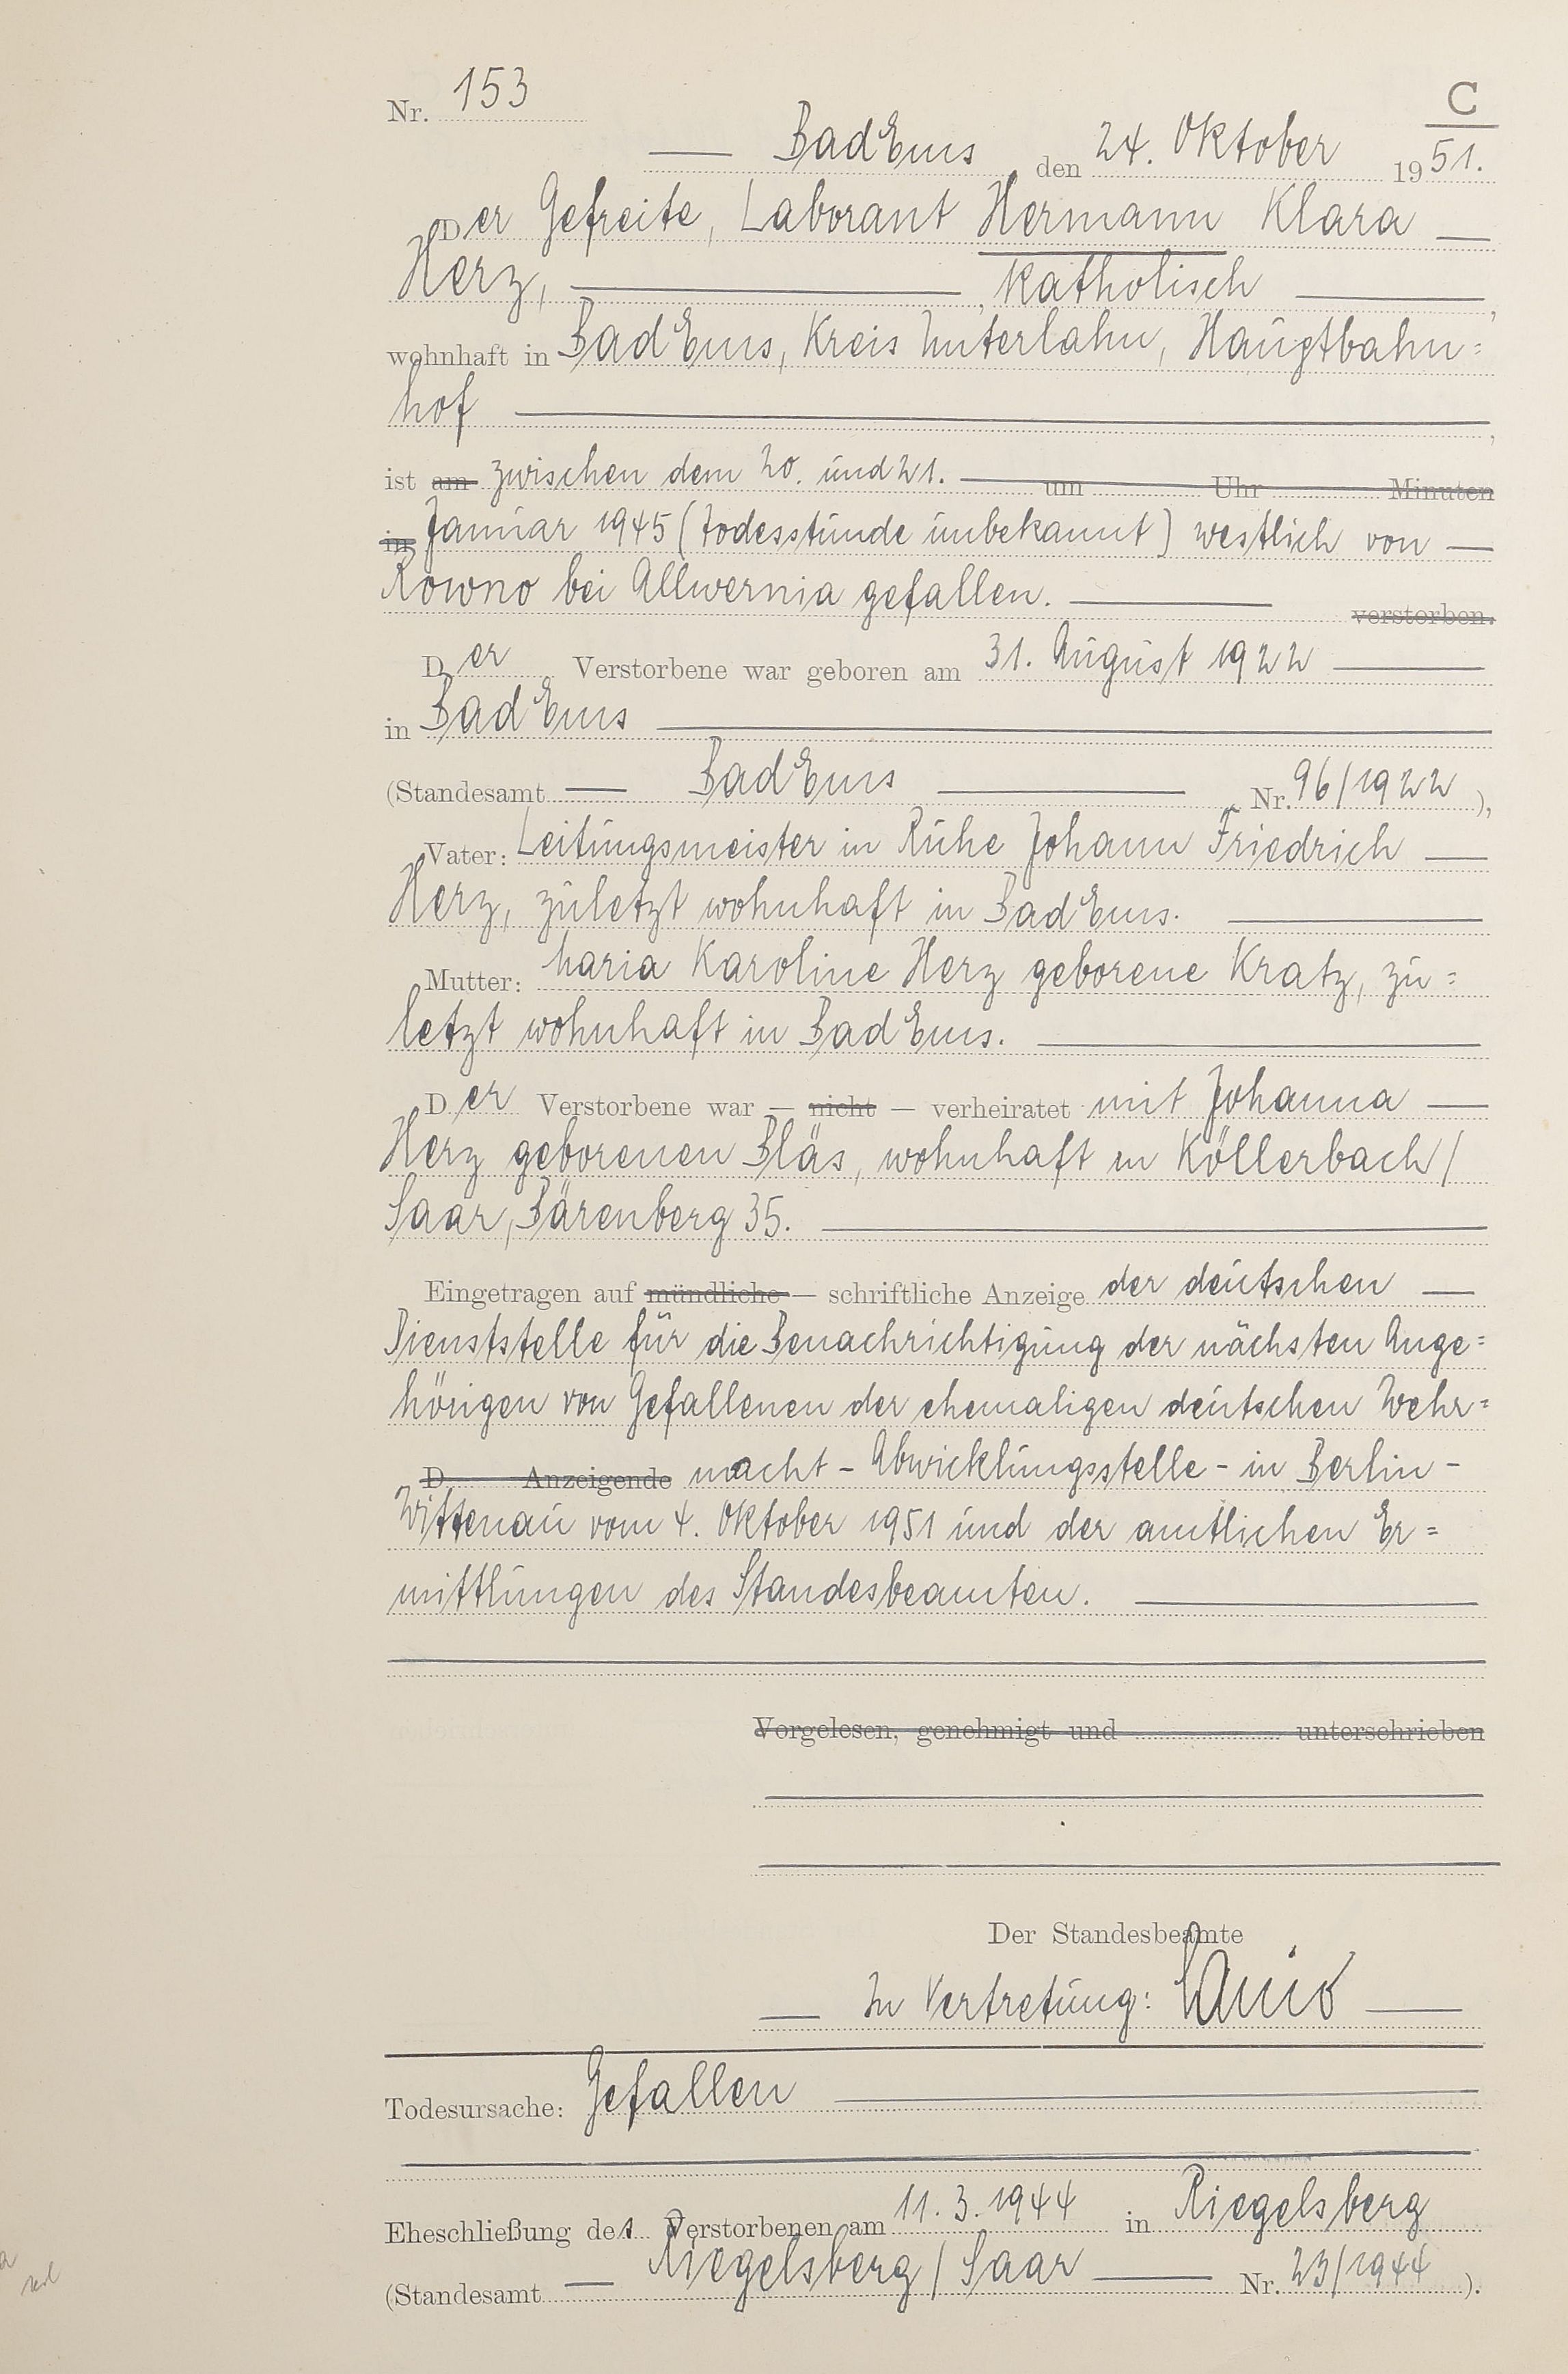 Nr. 153
C
Bad Ems den 24. Oktober 1951.
Der Gefreite, Laborant Hermann Klara
Herz, katholisch,
wohnhaft in Bad Ems, Kreis Unterlahn, Hauptbahn=
hof,
ist am zwischen dem 20. und 21. um Uhr Minuten
in Januar 1945 (Todesstunde unbekannt) westlich von
Rowno bei Allwernia gefallen. verstorben.
Der Verstorbene war geboren am 31. August 1922
in Bad Ems
(Standesamt Bad Ems Nr. 96/1922),
Vater: Leitungsmeister in Ruhe Johann Friedrich
Herz, zuletzt wohnhaft in Bad Ems.
Mutter: Maria Karoline Herz geborene Kratz, zu=
letzt wohnhaft in Bad Ems.
Der Verstorbene war – nicht – verheiratet mit Johanna
Herz geborenen Bläs, wohnhaft in Köllerbach/
Saar, Bärenberg 35.
Eingetragen auf mündliche – schriftliche Anzeige der deutschen
Dienststelle für die Benachrichtigung der nächsten Ange=
hörigen von Gefallenen der ehemaligen deutschen Wehr=
D Anzeigende macht - Abwicklungsstelle - in Berlin -
Wittenau vom 4. Oktober 1951 und der amtlichen Er=
mittlungen des Standesbeamten.
Vorgelesen, genehmigt und unterschrieben
Der Standesbeamte
In Vertretung:
Todesursache: Gefallen
Eheschließung des Verstorbenen am 11.3.1944 in Riegelsberg
(Standesamt Riegelsberg / Saar Nr. 23/1944).